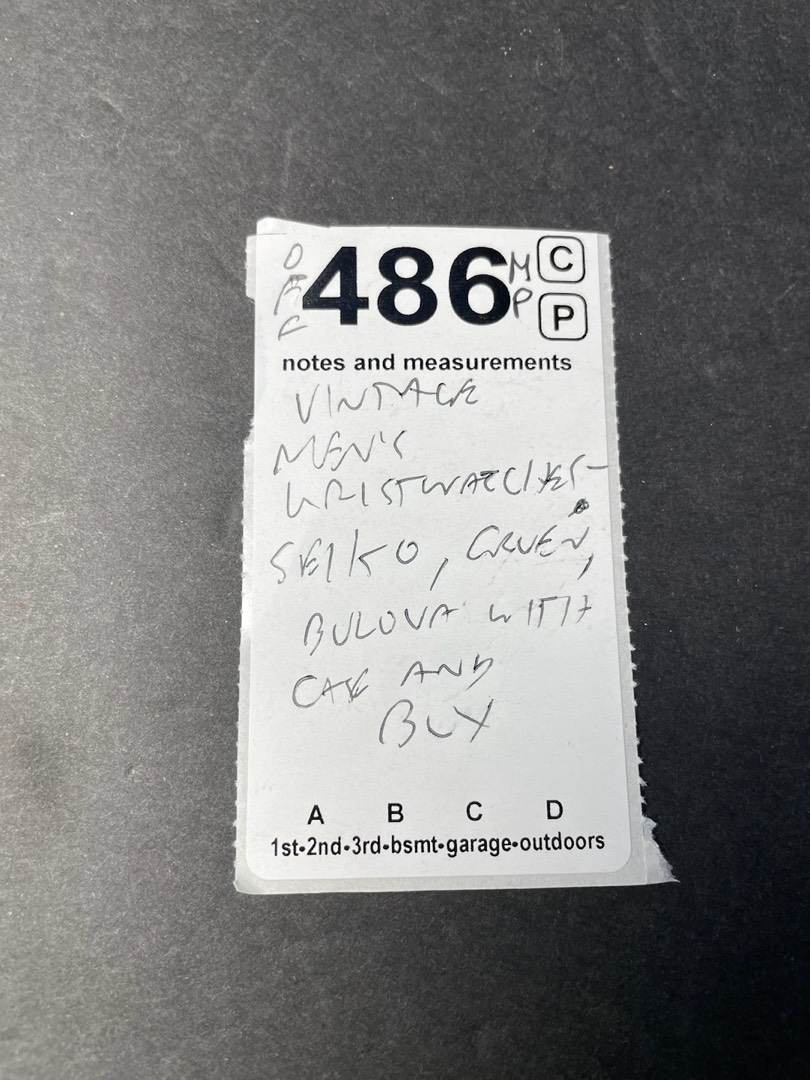 486 C
M
P P
notes and measurements
VINTAGE
MEN'S
WRISTWATCHES-
SEIKO, GRUEN,
BULOVA WITH
CASE AND
BOX
A B C D
1st•2nd•3rd•bsmt•garage•outdoors